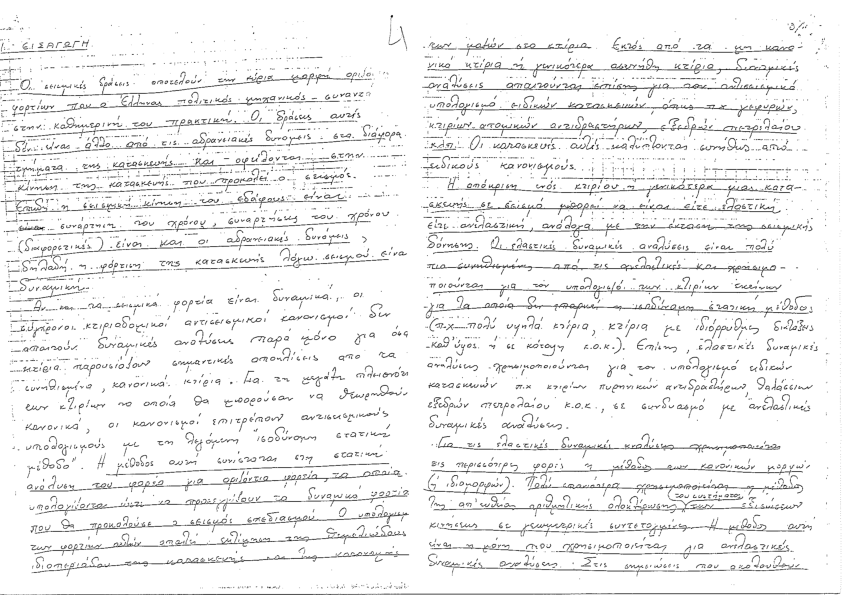 1. ΕΙΣΑΓΩΓΗ
Οι σεισμικές δράσεις αποτελούν την κύρια μορφή οριζο-
φορτίων που ο Έλληνας πολιτικός μηχανικός συναντά
στην καθημερινή του πρακτική. Οι δράσεις αυτές
δεν είναι άλλο από τις αδρανειακές δυνάμεις στα διάφορα
τμήματα της κατασκευής και οφείλονται στην
κίνηση της κατασκευής που προκαλεί ο σεισμός.
Επειδή η σεισμική κίνηση του εδάφους είναι
συνάρτηση του χρόνου, συναρτήσεις του χρόνου
(διαφορετικές) είναι και οι αδρανειακές δυνάμεις,
δηλαδή η φόρτιση της κατασκευής λόγω σεισμού είνα
δυναμική.
Αν και τα σεισμικά φορτία είναι δυναμικά, οι
σύγχρονοι κτιριοδομικοί αντισεισμικοί κανονισμοί δεν
απαιτούν δυναμικές αναλύσεις παρά μόνο για όσα
κτίρια παρουσιάζουν σημαντικές αποκλίσεις από τα
συνηθισμένα, κανονικά κτίρια. Για τη μεγάλη πλειονότη
των κτιρίων τα οποία θα μπορούσαν να θεωρηθούν
κανονικά, οι κανονισμοί επιτρέπουν αντισεισμικούς
υπολογισμούς με τη λεγόμενη "ισοδύναμη στατική
μέθοδο". Η μέθοδος αυτή συνίσταται στη στατική
ανάλυση του φορέα για οριζόντια φορτία, τα οποία
υπολογίζονται ώστε να προσεγγίζουν τα δυναμικά φορτία
που θα προκαλούσε ο σεισμός σχεδιασμού. Ο υπολογισμ
των φορτίων αυτών απαιτεί εκτίμηση της θεμελιώδους
ιδιοπεριόδου της κατασκευής και της κατανομής
των μαζών στο κτίριο. Εκτός από τα μη κανο-
νικά κτίρια ή γενικότερα ασυνήθη κτίρια, δυναμικές
αναλύσεις απαιτούνται επίσης για τον αντισεισμικό
υπολογισμό ειδικών κατασκευών, όπως π.χ γεφυρών,
κτιρίων ατομικών αντιδραστήρων, εξεδρών πετρελαίου
κλπ. Οι κατασκευές αυτές καλύπτονται συνήθως από
ειδικούς κανονισμούς.
Η απόκριση ενός κτιρίου ή γενικότερα μιας κατα-
σκευής σε σεισμό μπορεί να είναι είτε ελαστική
είτε ανελαστική, ανάλογα με την έκταση της σεισμικής
δόνησης. Οι ελαστικές δυναμικές αναλύσεις είναι πολύ
πιο συνηθισμένες από τις ανελαστικές και χρησιμο-
ποιούνται για τον υπολογισμό των κτιρίων εκείνων
για τα οποία δεν επαρκεί η ισοδύναμη στατική μέθοδος
(π.χ πολύ υψηλά κτίρια, κτίρια με ιδιόρρυθμη διάταξη
καθ' ύψος ή σε κάτοψη κ.ο.κ.). Επίσης, ελαστικές δυναμικές
αναλύσεις χρησιμοποιούνται για τον υπολογισμό ειδικών
κατασκευών π.χ κτιρίων πυρηνικών αντιδραστήρων θαλάσσιων
εξεδρών πετρελαίου κ.ο.κ., σε συνδυασμό με ανελαστικές
δυναμικές αναλύσεις.
Για τις ελαστικές δυναμικές αναλύσεις χρησιμοποιείται
τις περισσότερες φορές η μέθοδος των κανονικών μορφών
(ή ιδιομορφών). Πολύ σπανιότερα χρησιμοποιείται η μέθοδος
της απ' ευθείας αριθμητικής ολοκλήρωσης (του συστήματος) των εξισώσεων
κινήσεως σε γεωμετρικές συντεταγμένες. Η μέθοδος αυτή
είναι η μόνη που χρησιμοποιείται για ανελαστικές
δυναμικές αναλύσεις. Στις σημειώσεις που ακολουθούν